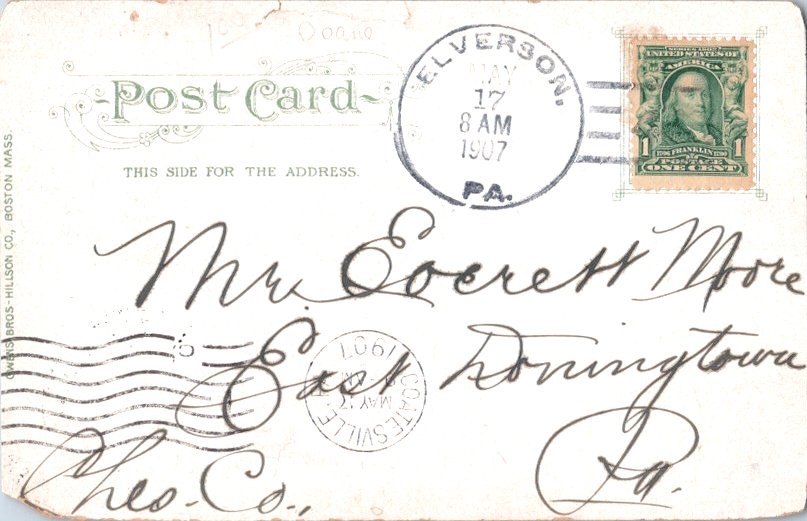 Doane
Post Card
THIS SIDE FOR THE ADDRESS.
OWENS BROS-HILLSON CO., BOSTON MASS.
ELVERSON,
MAY
17
8 AM
1907
PA.
SERIES 1902
UNITED STATES OF
AMERICA
1 1
1706 FRANKLIN 1790
POSTAGE
ONE CENT
Mr. Everett Moore
East Doningtown
Ches. Co., Pa.
COATESVILLE
MAY 17
1907